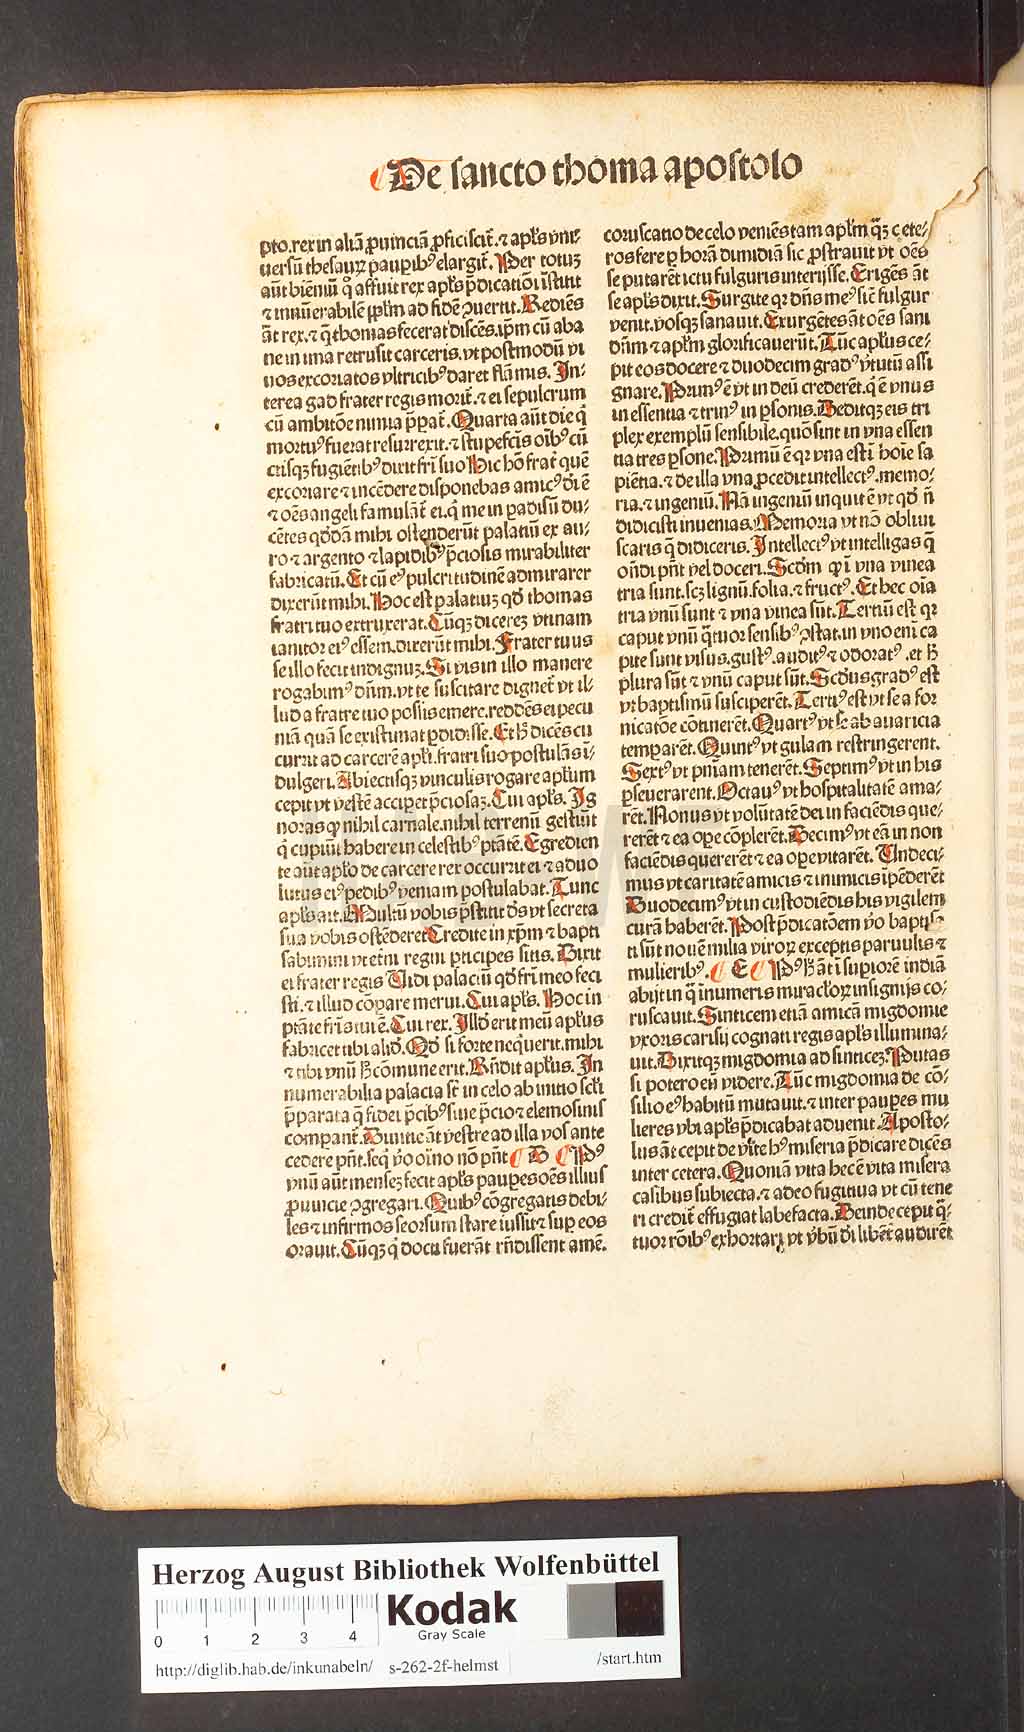 De sancto thoma apostolo
pto. rex in aliā ꝓuinciā ꝓficiscit̄. ⁊ apl̄s vni⸗
uersū thesauꝝ pauꝑibꝰ elargit̄. Per totuꝫ
aūt bienniū q̊ affuit rex apl̄s p̄dicatiōi īstitit
⁊ innūerabilē ppl̄m ad fidē ꝯuertit. Rediēs
āt rex. ⁊ q̄ thomas fecerat discēs. ip̄m cū aba
ne in ima retrusit carceris. vt postmodū vi
uos excoriatos vltricibꝰ daret flāmis. In⸗
terea gad frater regis morit̄. ⁊ ei sepulcrum
cū ambitōe nimia p̄pat̄. Quarta aūt die q̄
mortuꝰ fuerat resurrexit. ⁊ stupefctīs oībꝰ cū
ctisqꝫ fugiētibꝰ dixit frī suo Hic hō frat̄ quē
excoriare ⁊ incēdere disponebas amicꝰ dī ē
⁊ oēs angeli famulāt̄ ei. q̇ me in ꝑadisū du⸗
cētes qđdā mihi ostenderūt palatiū ex au⸗
ro ⁊ argento ⁊ lapidibꝰ p̄ciosis mirabiliter
fabricatū. Et cū eꝰ pulcritudinē admirarer
dixerūt mihi. Hoc est palatiuꝫ qđ thomas
fratri tuo extruxerat. Cūqꝫ dicereꝫ vtinam
ianitor eiꝰ essem. dixerūt mihi. Frater tuus
se illo fecit indignuꝫ. Si vis in illo manere
rogabimꝰ dn̄m. vt te suscitare dignet̄ vt il⸗
lud a fratre tuo possis emere. reddēs ei pecu
niā quā se existimat ꝑdidisse. Et h̄ dicēs cu
currit ad carcerē apl̄i. fratri suo postulās ī⸗
dulgeri. Abiectisqꝫ vinculis rogare apl̄um
cepit vt vestē acciꝑet p̄ciosaꝫ. Cui apl̄s. Ig
noras ꝙ nihil carnale. nihil terrenū gestiūt
q̇ cupiūt habere in celestibꝰ ptātē. Egredien
te aūt apl̄o de carcere rex occurrit ei ⁊ aduo
lutus eiꝰ pedibꝰ veniam postulabat. Tunc
apl̄s ait. Multū vobis p̄stitit d̄s vt secreta
sua vobis ostēderet Credite in xp̄m ⁊ bapti
sabimini vt et̄ni regni p̄ticipes sitis. Dixit
ei frater regis Uidi palaciū qđ frī meo feci
sti. ⁊ illud cōpare merui. Cui apl̄s. Hoc in
ptāte fr̄is tui ē. Cui rex. Illđ erit meū apl̄us
fabricet tibi aliđ. Qđ si forte neq̇uerit. mihi
⁊ tibi vnū h̄ cōmune erit. Rn̄dit apl̄us. In
numerabilia palacia st̄ in celo ab initio scl̄i
p̄parata q̄ fidei p̄cibꝰ siue p̄cio ⁊ elemosinis
comparant̄. Diuitie āt vestre ad illa vos ante
cedere pn̄t. seq̇ ṽo oīno nō pn̄t D Pꝰ
vnū aūt menseꝫ fecit apl̄s pauꝑes oēs illius
ꝓuincie ꝯgregari. Quibꝰ cōgregatis debi⸗
les ⁊ infirmos seorsum stare iussit ⁊ suꝑ eos
orauit. Cūqꝫ q̇ docti fuerāt rn̄dissent amē.
coruscatio de celo veniēs tam apl̄m q̄ꝫ cete⸗
ros fere ꝑ horā dimidiā sic ꝓstrauit vt oēs
se putarēt ictu fulguris interijsse. Erigēs āt
se apl̄s dixit. Surgite qꝛ dn̄s meꝰ sic̄ fulgur
venit. vosqꝫ sanauit. Exurgētes āt oēs sani
dn̄m ⁊ apl̄m glorificauerūt. Tūc apl̄us ce⸗
pit eos docere ⁊ duodecim gradꝰ v̄tutū assi
gnare. Primꝰ ē vt in deū crederēt. q̇ ē vnus
in essentia ⁊ trinꝰ in ꝑsonis. Deditqꝫ eis tri
plex exemplū sensibile. quō sint in vna essen
tia tres ꝑsone. Primū ē qꝛ vna est ī hoīe sa
piētia. ⁊ de illa vna ꝓcedit intellectꝰ. memo⸗
ria. ⁊ ingeniū. Nā ingeniū inquit ē vt qđ n̄
didicisti inuenias. Memoria vt nō obliui
scaris q̄ didiceris. Intellectꝰ vt intelligas q̄
on̄di pn̄t vel doceri. Scđm ꝙ ī vna vinea
tria sunt. scꝫ lignū. folia. ⁊ fructꝰ. Et hec oīa
tria vnū sunt ⁊ vna vinea sūt. Tertiū est qꝛ
caput vnū q̄tuor sensibꝰ ꝯstat. in vno enī ca
pite sunt visus. gustꝰ. auditꝰ ⁊ odoratꝰ. et h̄
plura sūt ⁊ vnū caput sūt. Scđus gradꝰ est
vt baptismū susciperēt. Tertiꝰ est vt se a for
nicatōe cōtinerēt. Quartꝰ vt se ab auaricia
temꝑarēt. Quintꝰ vt gulam restringerent.
Sextꝰ vt pn̄iam tenerēt. Septimꝰ vt in his
ꝑseuerarent. Octauꝰ vt hospitalitatē ama⸗
rēt. Nonus vt volūtatē dei in faciēdis que⸗
rerēt ⁊ ea oꝑe cōplerēt. Decimꝰ vt eā in non
faciēdis quererēt ⁊ ea oꝑe vitarēt. Undeci⸗
mus vt caritatē amicis ⁊ inimicis īpēderēt
Duodecimꝰ vt in custodiēdis his vigilem
curā haberēt. Post p̄dicatōem ṽo bapti⸗
ti sūt nouē milia viroꝝ exceptis paruulis ⁊
mulieribꝰ. E Pꝰ h̄ āt ī suꝑiorē indiā
abijt in q̄ īnumeris miracl̄oꝝ insignijs co⸗
ruscauit. Sinticem etiā amicā migdomie
vxoris carisij cognati regis apl̄s illumina⸗
uit. Dixitqꝫ migdomia ad sinticeꝫ. Putas
si potero eū videre. Tūc migdomia de cō⸗
silio eꝰ habitū mutauit. ⁊ inter pauꝑes mu
lieres vbi apl̄s p̄dicabat aduenit. Aposto⸗
lus āt cepit de vite hꝰ miseria p̄dicare dicēs
inter cetera. Quoniā vita hec ē vita misera
casibus subiecta. ⁊ adeo fugitiua vt cū tene
ri credit̄ effugiat labefacta. Deinde cepit q̄⸗
tuor rōibꝰ exhortari vt v̄bū dī libēt̄ audirēt
Herzog August Bibliothek Wolfenbüttel
0 1 2 3 4
Kodak
Gray Scale
http://diglib.hab.de/inkunabeln/ s-262-2f-helmst /start.htm